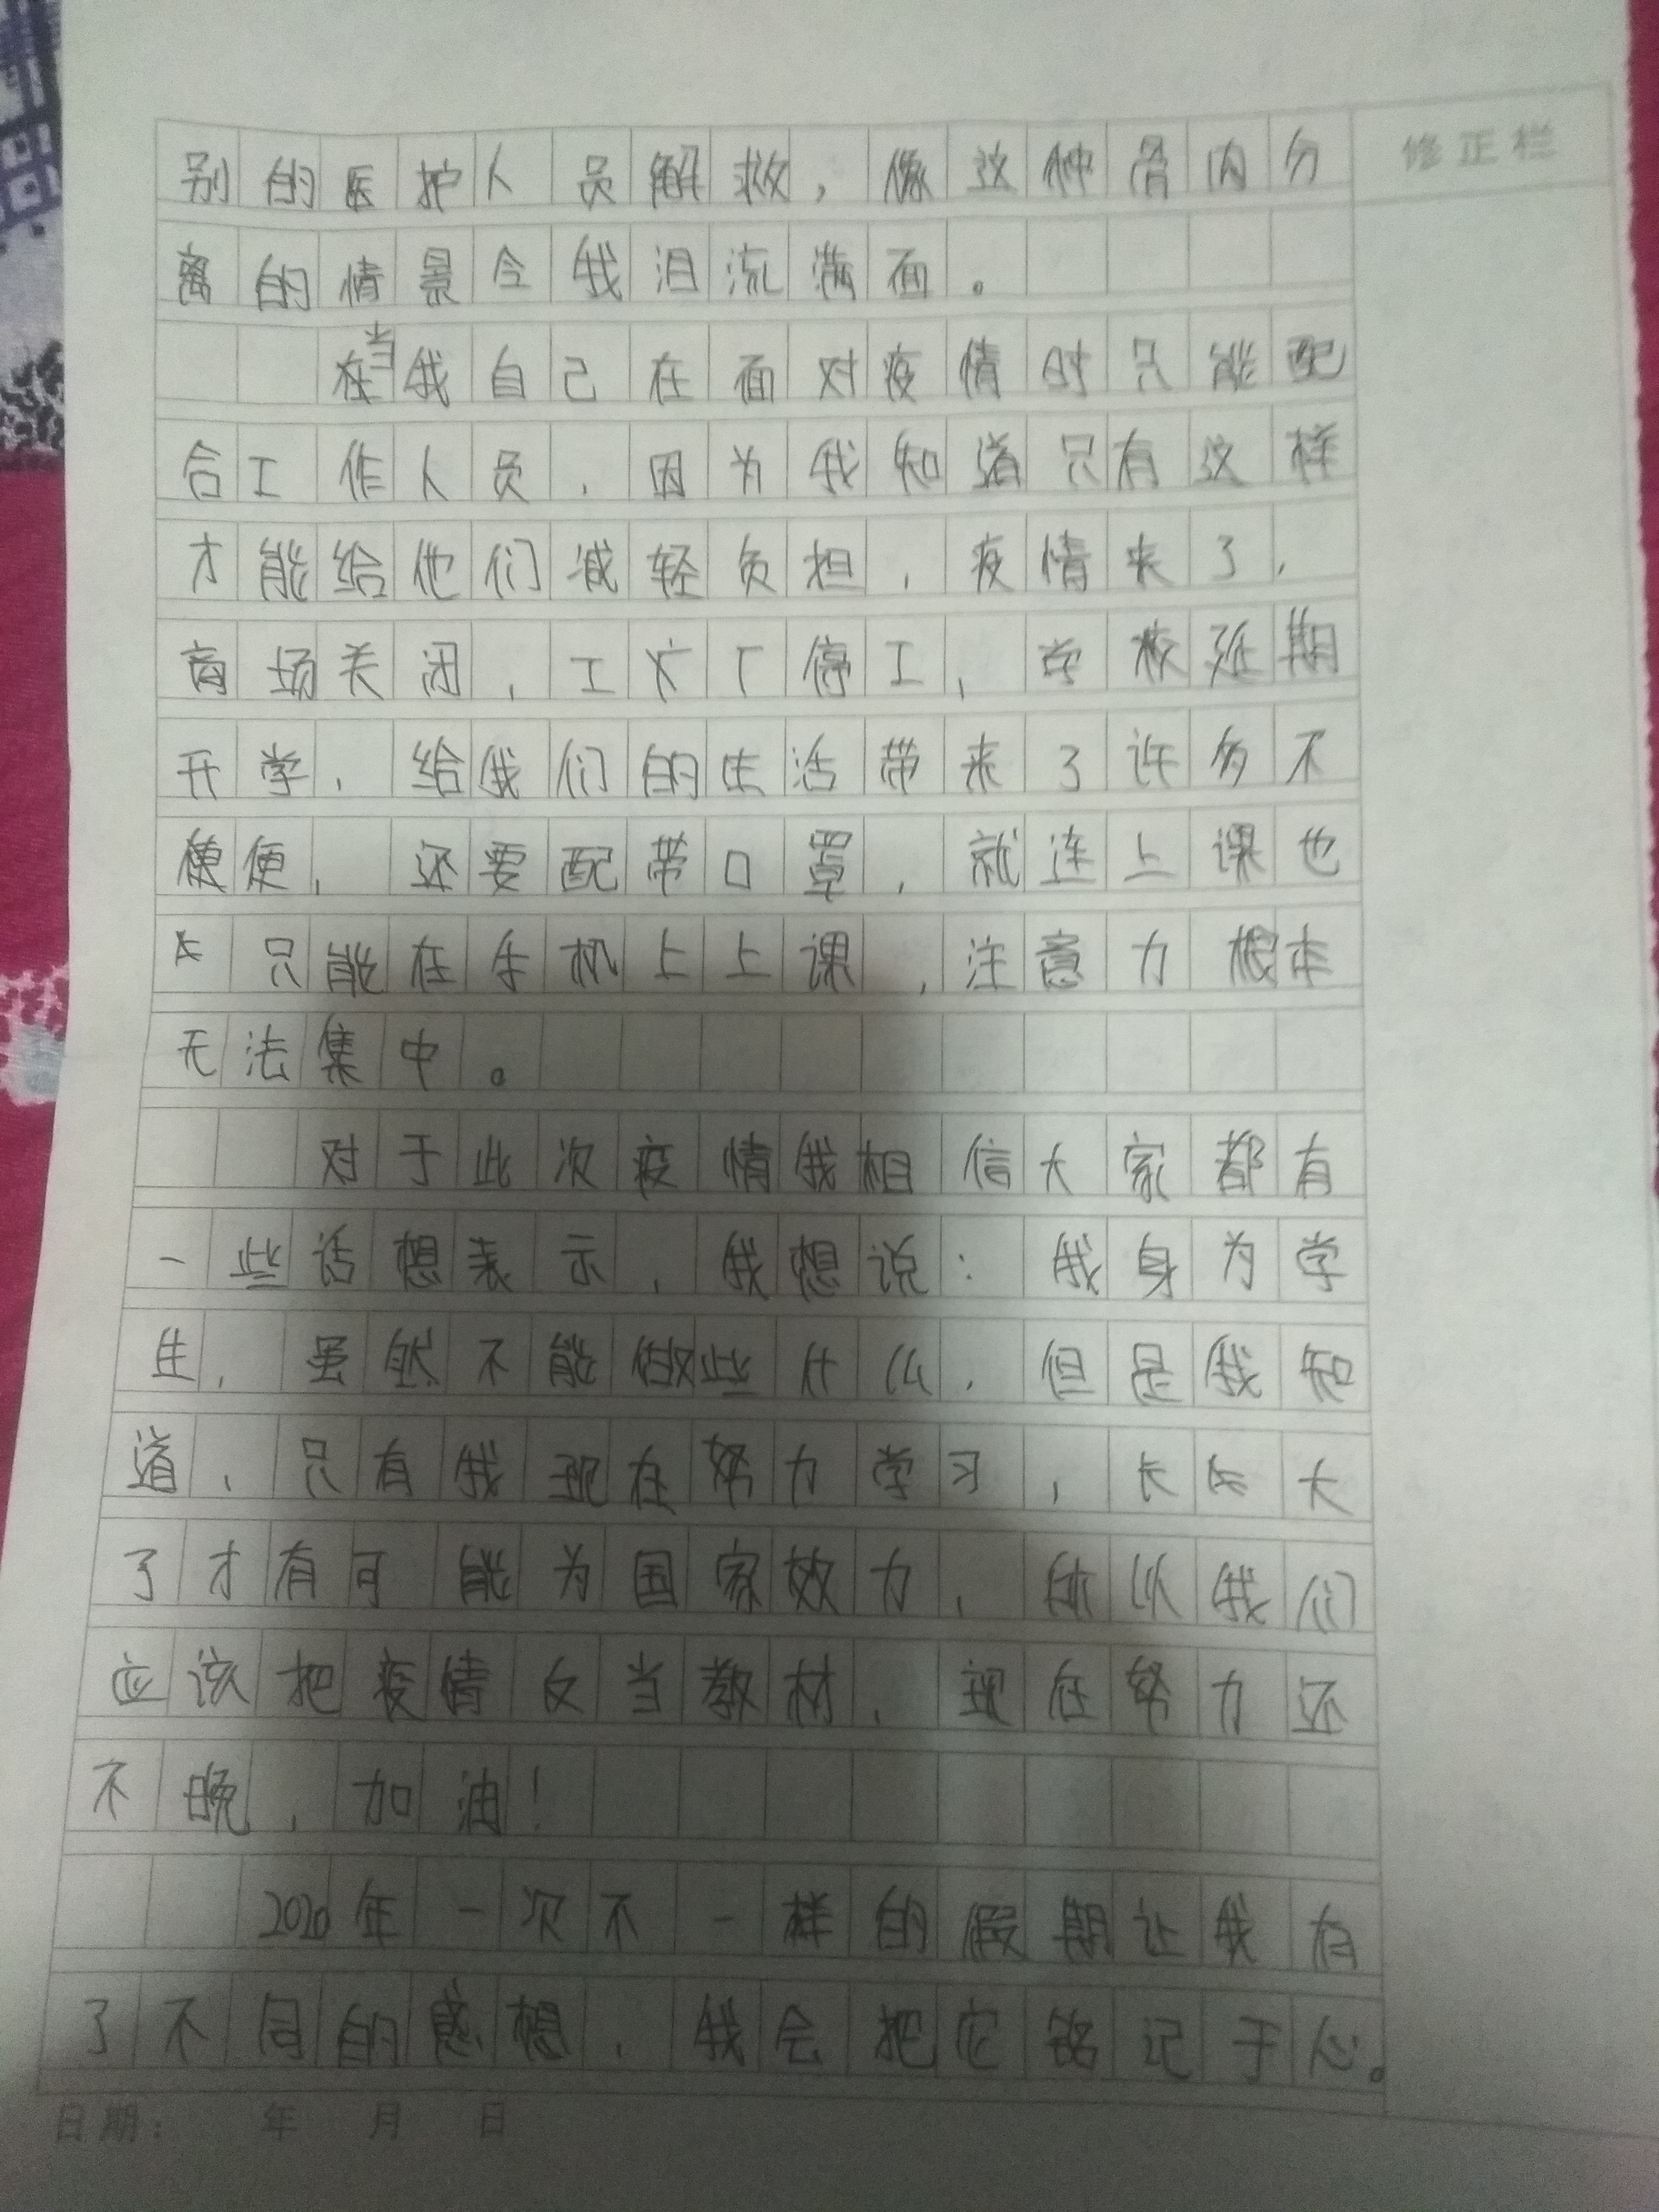 修正栏
别的医护人员解救，像这种骨肉分
离的情景令我泪流满面。
在当我自己在面对疫情时只能配
合工作人员，因为我知道只有这样
才能给他们减轻负担，疫情来了，
商场关闭，工厂停工，学校延期
开学，给我们的生活带来了许多不
便，还要配带口罩，就连上课也
只能在手机上上课，注意力根本
无法集中。
对于此次疫情我相信大家都有
一些话想表示，我想说：我身为学
生，虽然不能做些什么，但是我知
道，只有我现在努力学习，长大
了才有可能为国家效力，所以我们
应该把疫情反当教材，现在努力还
不晚，加油！
2020年一次不一样的假期让我有
了不同的感想，我会把它铭记于心。
日期： 年 月 日